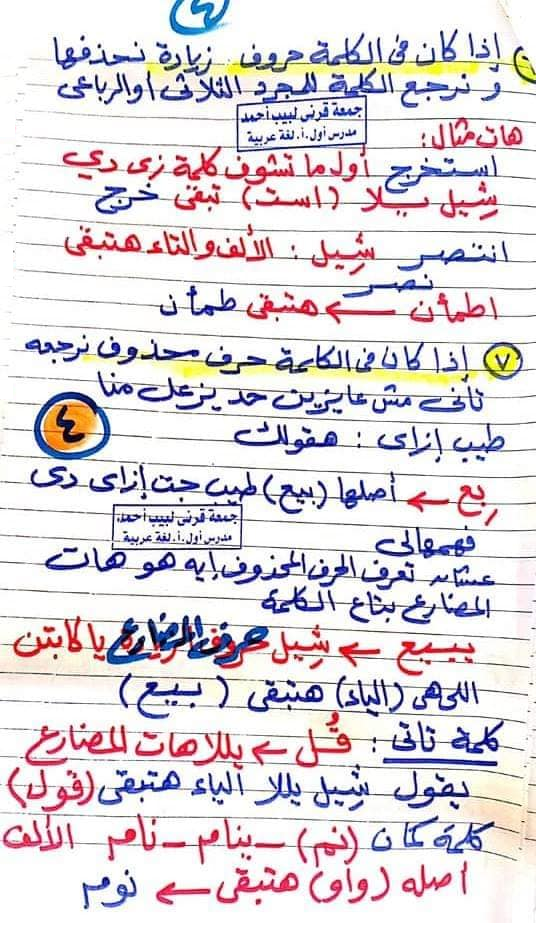 ٤
٦ إذا كان فى الكلمة حروف زيادة نحذفها
و نرجع الكلمة للمجرد الثلاثى أو الرباعى
جمعة قرنى لبيب أحمد
مدرس أول.أ. لغة عربية
هات مثال:
استخرج أول ما تشوف كلمة زى دي
شِيل يلا (است) تبقى خرج
انتصر شِيل : الألف والتاء هتبقى
نصر
اطمأن ← هتبقى طمأن
٧ إذا كان فى الكلمة حرف محذوف نرجعه
تأنى مش عايزين حد يزعل منا
طيب إزاى : هقولك
٤
بِع ← أصلها (بيع) طيب جت إزاى دى
جمعة قرنى لبيب أحمد
مدرس أول.أ. لغة عربية
فهمهالى
عشان تعرف الحرف المحذوف إيه هو هات
المضارع بتاع الكلمة
يبيع ← شِيل حروف المضارع يا كابتن
اللى هى (الياء) هتبقى (بيع)
كلمة تانى : قُل ← يلا هات المضارع
يقول شِيل يلا الياء هتبقى (قول)
كلمة كمان (نم) – ينام – نام الألف
أصله (واو) هتبقى ← نوم